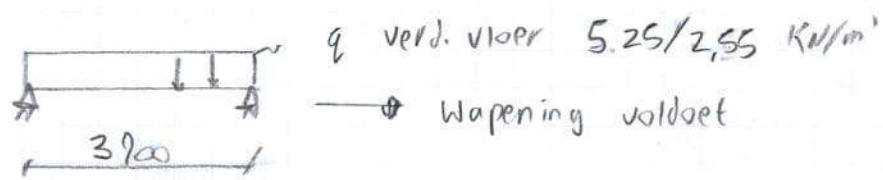 q verd. vloer 5.25/2,55 KN/m'
→ Wapening voldoet
3900